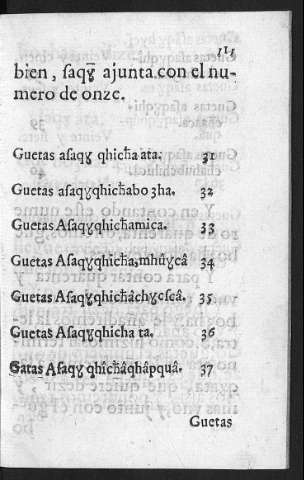 111
bien, saqɣ̄ ajunta con el nu-
mero de onze.
Guetas asaqɣ qhicħa ata. 31
Guetas asaqɣqhicħabo ʒha. 32
Guetas Asaqɣqhicħamica. 33
Guetas Asaqɣqhicħa,mhûɣcâ 34
Guetas Asaqɣqhicħâchɣcscâ. 35
Guetas Asaqɣqhicha ta. 36
Gatas Asaqɣ qhicħâqhâpquâ. 37
Guetas